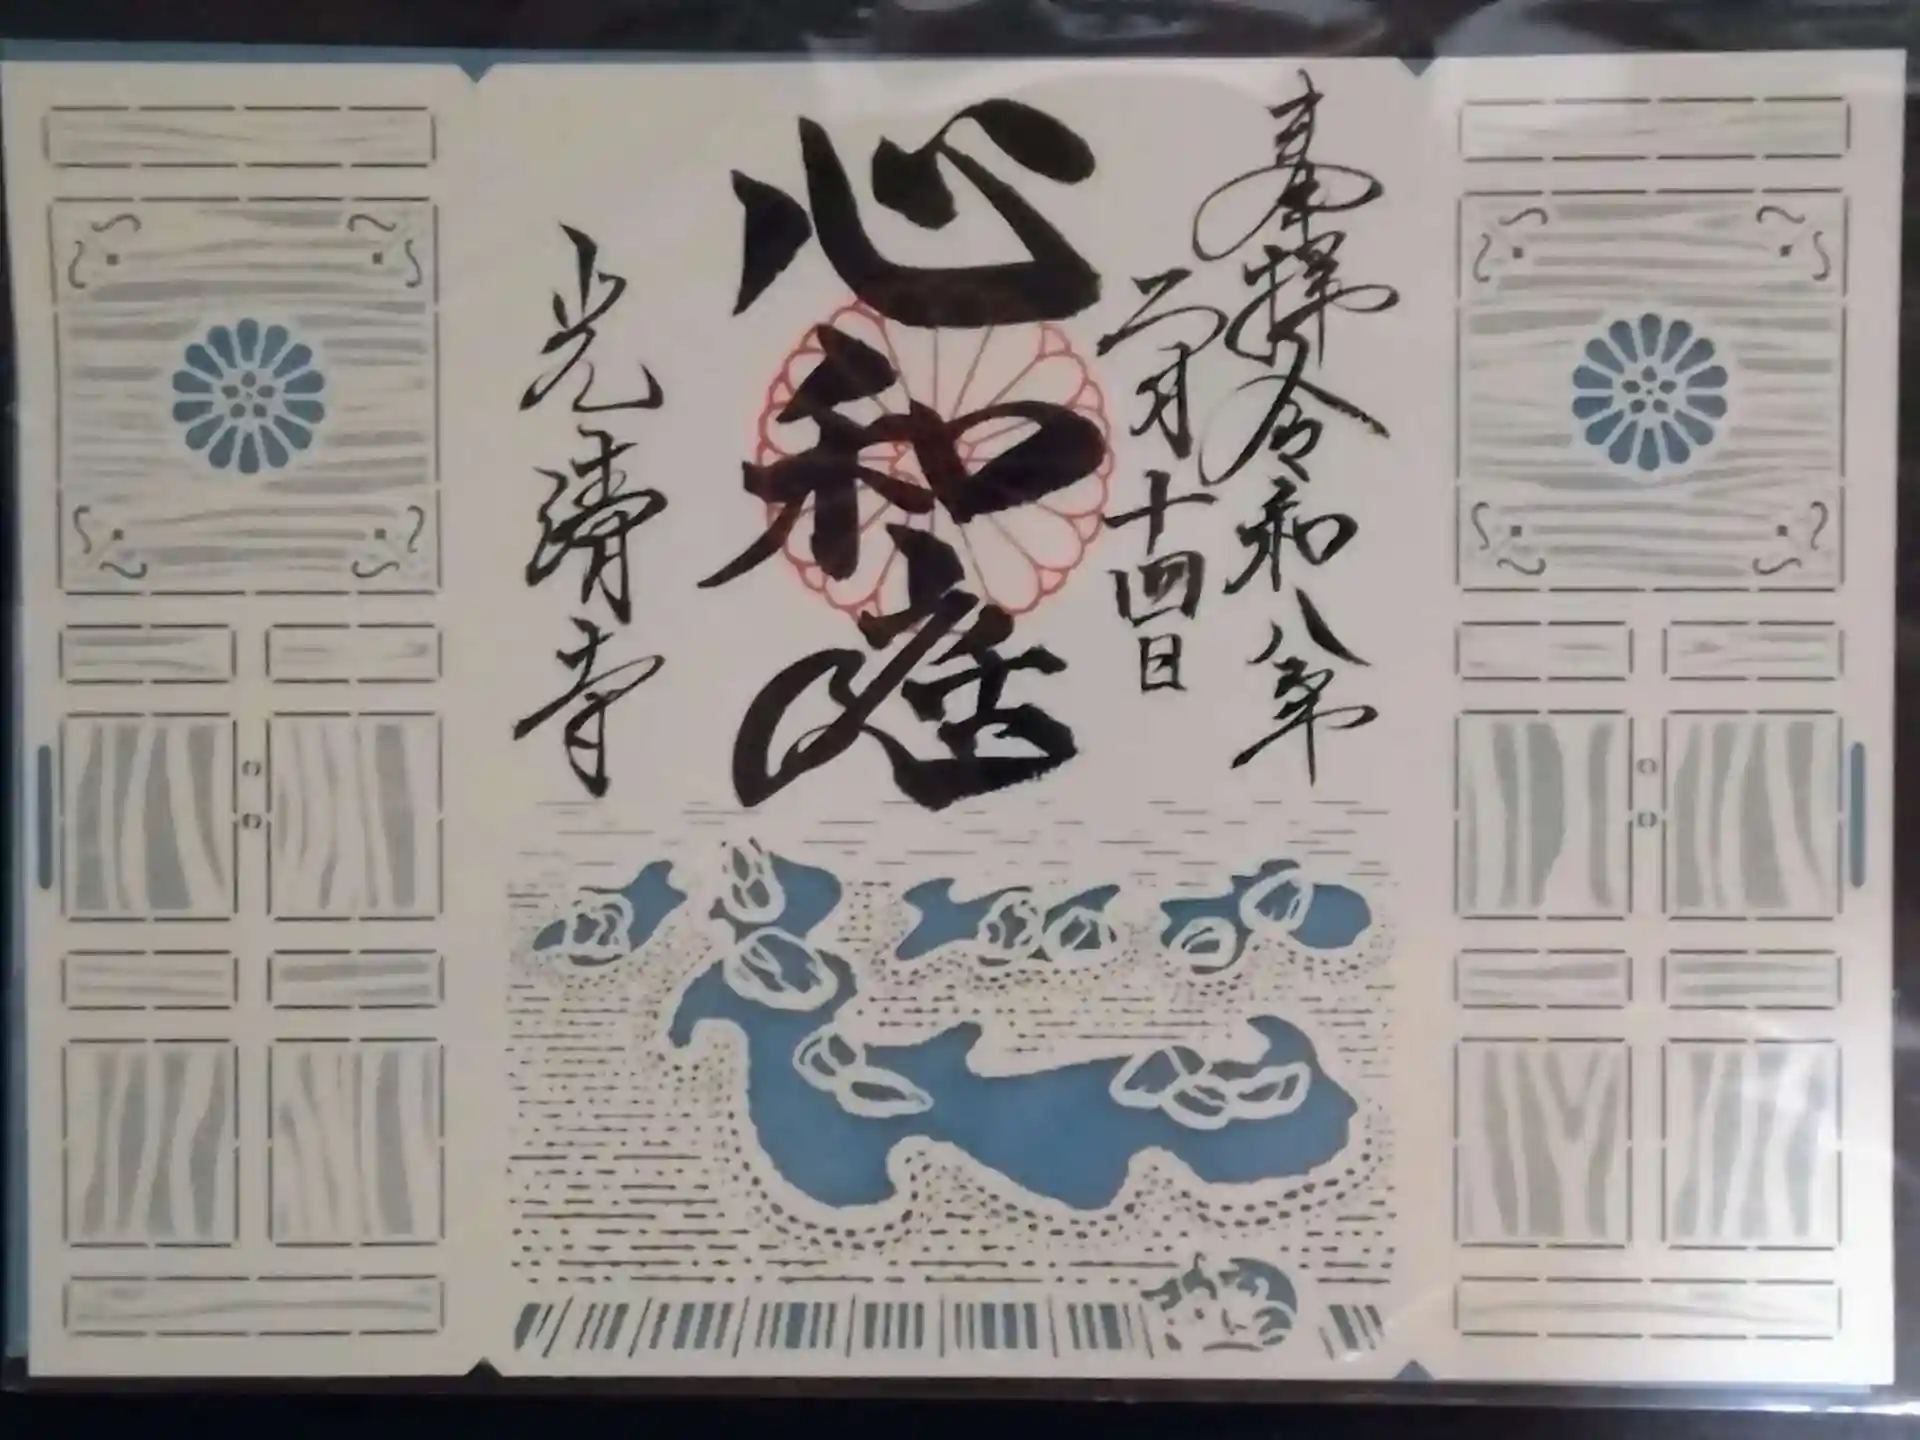 奉拝 令和八年
二月十四日
心和庭
光清寺